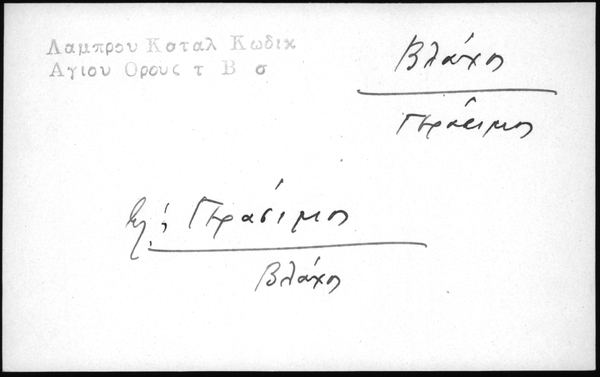 Λαμπρου Καταλ Κωδικ
Αγιου Ορους τ Β σ
Βλάχος
Γεράσιμος
Γεράσιμος
Βλάχος